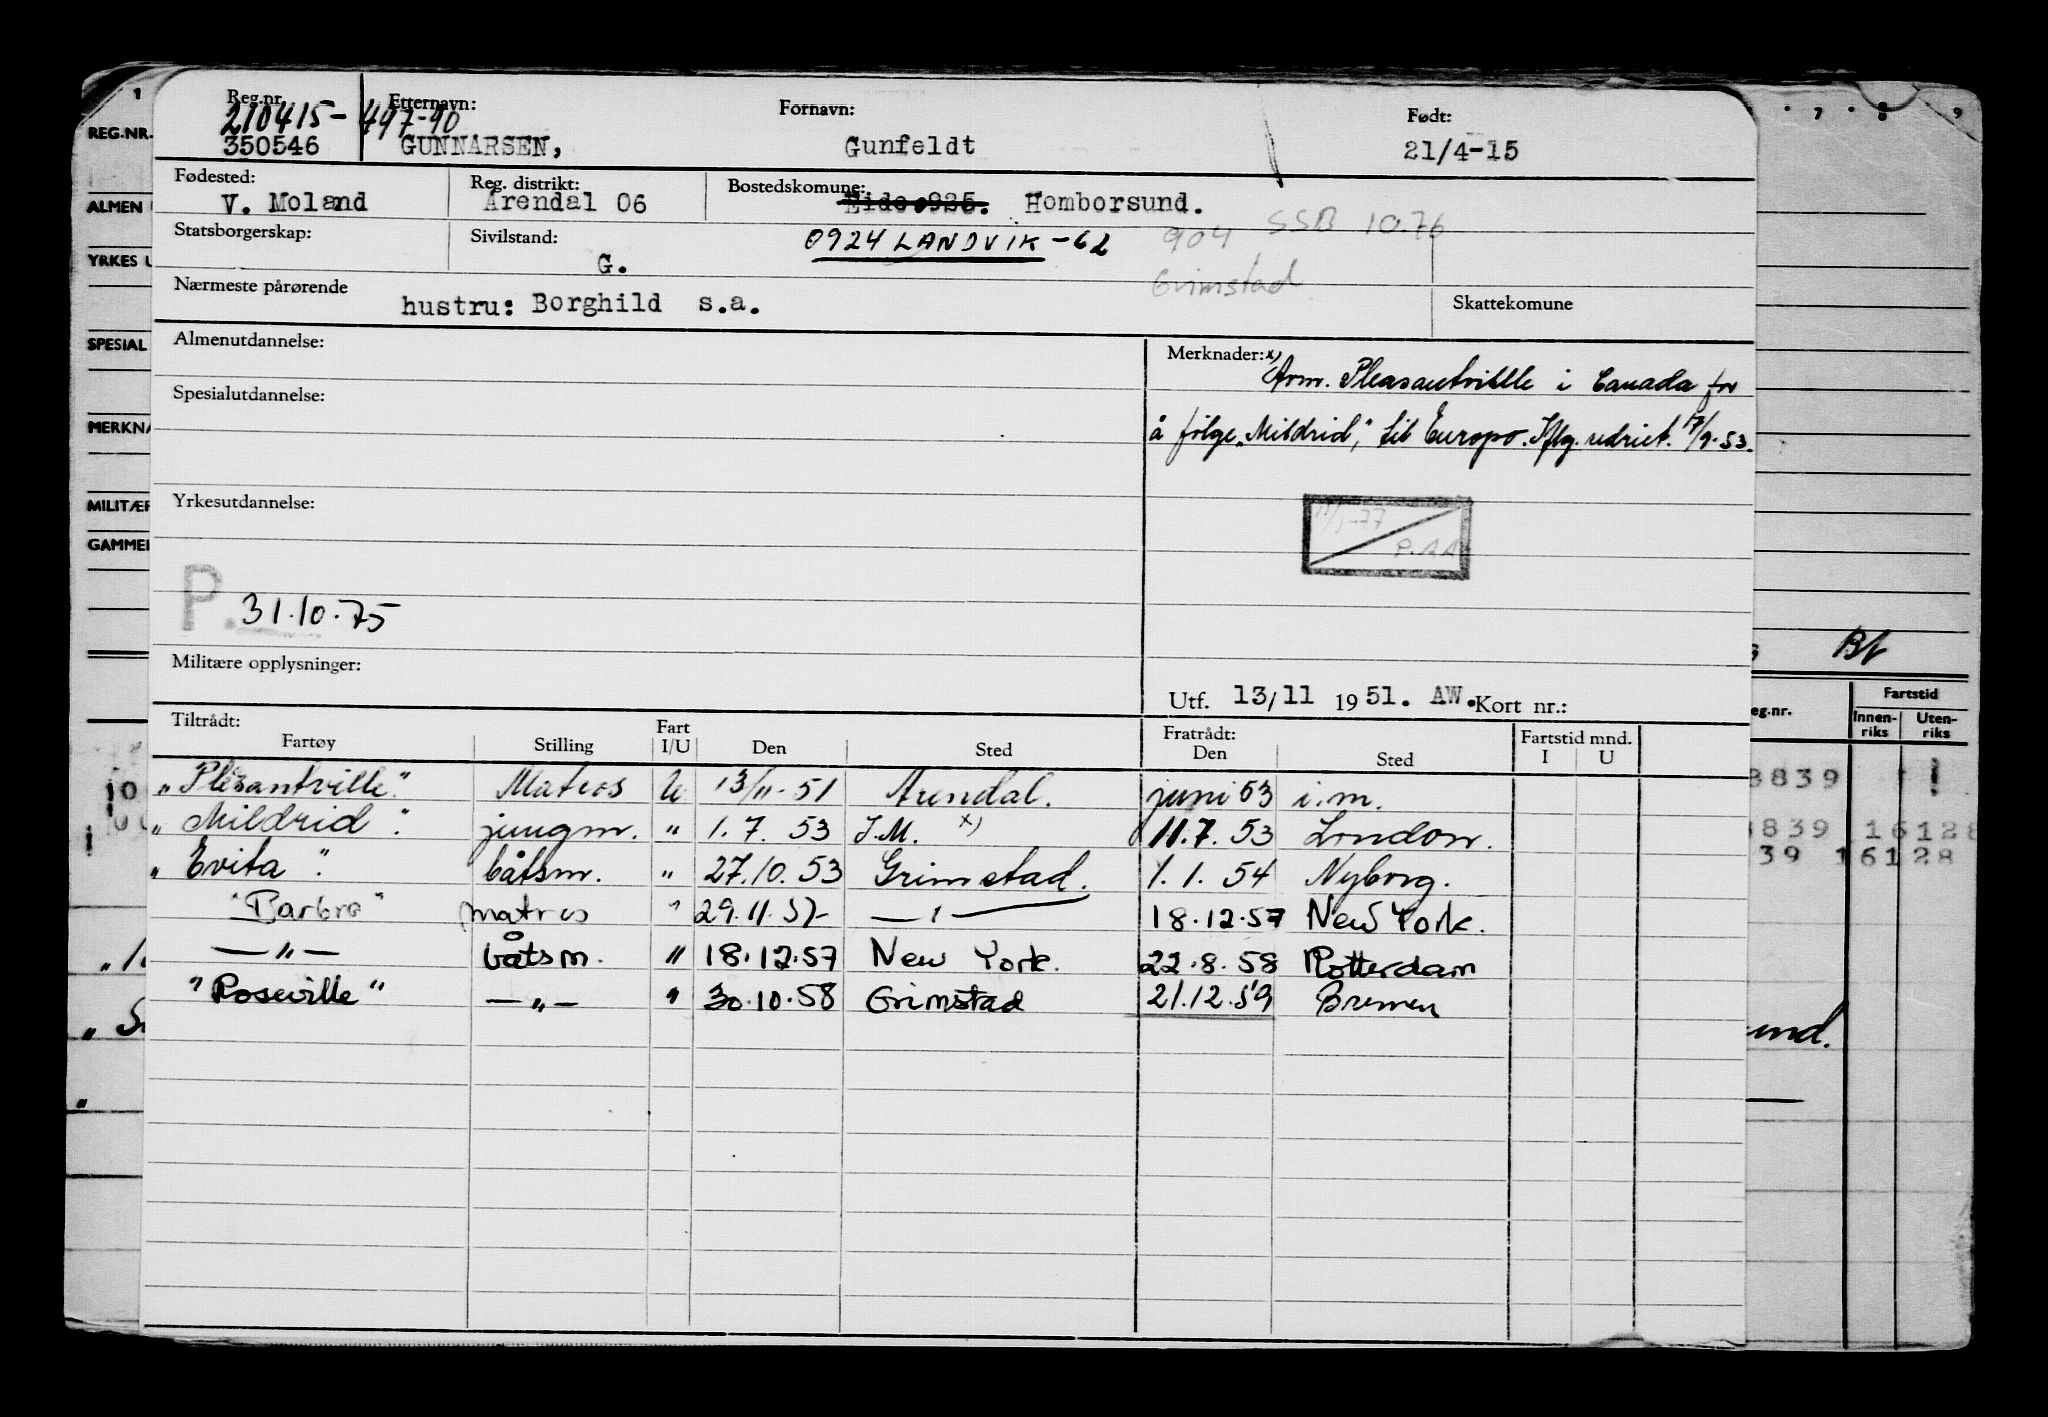 Reg.nr. Etternavn: Fornavn: Født:
210415-497-90
350546 GUNNARSEN, Gunfeldt 21/4-15
Fødested: Reg. distrikt: Bostedskomune:
V. Moland Arendal 06 Eide 925. Homborsund.
Statsborgerskap: Sivilstand: 0924 LANDVIK -62 904 SSB 10.76
G. Grimstad
Nærmeste pårørende Skattekomune
hustru: Borghild s.a.
Almenutdannelse: Merknader: x)
Avm. Pleasantville i Canada for
Spesialutdannelse:
å følge "Mildrid," til Europa. Iflg. udriet. 17/9-53.
Yrkesutdannelse:
11/1-77
P.
P. 31.10.75
Militære opplysninger:
Utf. 13/11 1951. AW. Kort nr.:
Tiltrådt: Fart Fratrådt: Fartstid mnd.
Fartøy Stilling I/U Den Sted Den Sted I U
"Plesantville" Matros U 13/11-51 Arendal. juni 53 i.m.
"Mildrid" jungm. " 1.7. 53 I.M. x) 11.7. 53 London.
"Evita" båtsm. " 27.10. 53 Grimstad. 1.1. 54 Nyborg.
"Barbro" matros " 29.11.57 — " — 18.12.57 New York.
— " — båtsm. " 18.12.57 New York. 22.8.58 Rotterdam
"Roseville" — " — " 30.10.58 Grimstad 21.12.59 Bremen
1
REG.NR.
ALMEN
YRKES U
SPESIAL
MERKNA
MILITÆR
GAMMEL
7 8 9
Bf
eg.nr. Fartstid
Innen-riks Uten-riks
8839
8839 16128
39 16128
und.